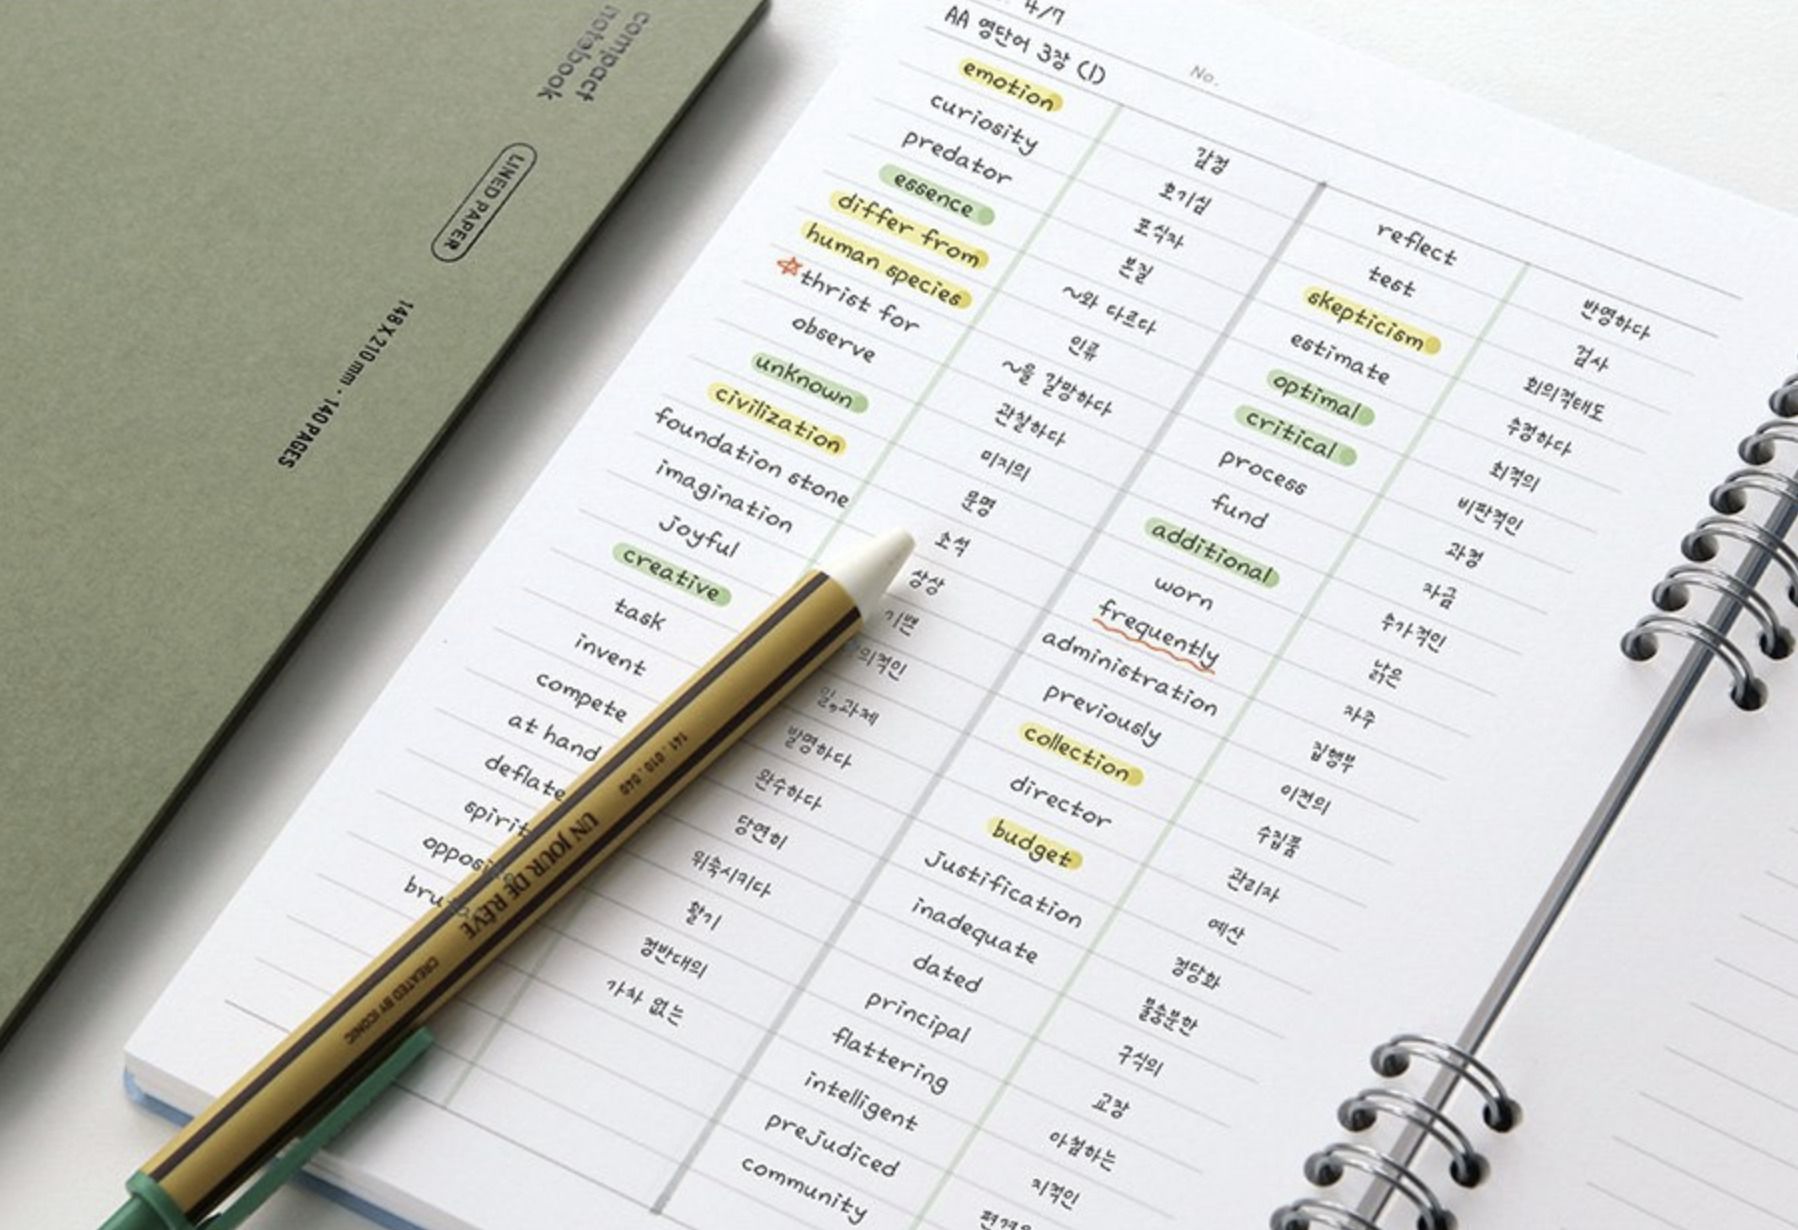 compact
notebook
LINED PAPER
148 X 210 mm · 140 PAGES
4/7
AA 영단어 3장 (1)
No.
emotion 감정
curiosity 호기심
predator 포식자
essence 본질
differ from ~와 다르다
human species 인류
☆thrist for ~을 갈망하다
observe 관찰하다
unknown 미지의
civilization 문명
foundation stone 초석
imagination 상상
joyful 기쁜
creative 의적인
task 일,과제
invent 발명하다
compete 완수하다
at hand 당연히
deflate 위축시키다
spirit 활기
정반대의
가차 없는
reflect 반영하다
test 검사
skepticism 회의적태도
estimate 추정하다
optimal 최적의
critical 비판적인
process 과정
fund 자금
additional 추가적인
worn 낡은
frequently 자주
administration 집행부
previously 이전의
collection 수집품
director 관리자
budget 예산
justification 정당화
inadequate 불충분한
dated 구식의
principal 교장
flattering 아첨하는
intelligent 지적인
prejudiced
community
141. 010. 040
UN JOUR DE RÊVE
CREATED BY ICONIC